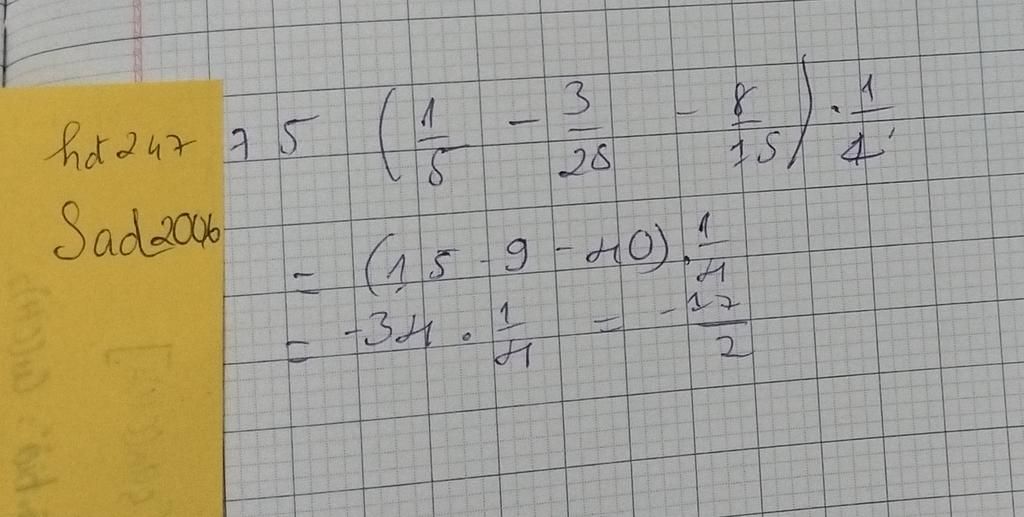 hdt247
Sad2006
75 (1/5 - 3/25 - 8/15) · 1/4
= (15 - 9 - 40) · 1/4
= -34 · 1/4 = -17/2